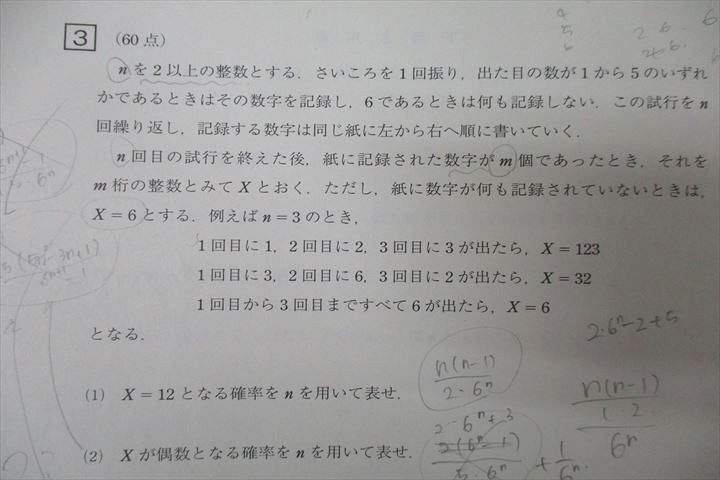 3 (60点)
nを2以上の整数とする．さいころを1回振り，出た目の数が1から5のいずれ
かであるときはその数字を記録し，6であるときは何も記録しない．この試行をn
回繰り返し，記録する数字は同じ紙に左から右へ順に書いていく．
n回目の試行を終えた後，紙に記録された数字がm個であったとき，それを
m桁の整数とみてXとおく．ただし，紙に数字が何も記録されていないときは，
X＝6とする．例えばn＝3のとき，
1回目に1，2回目に2，3回目に3が出たら，X＝123
1回目に3，2回目に6，3回目に2が出たら，X＝32
1回目から3回目まですべて6が出たら，X＝6
となる．
2·6ⁿ-2+5
(1) X＝12となる確率をnを用いて表せ．
n(n-1)
2·6ⁿ
n(n-1)
1·2
6ⁿ
(2) Xが偶数となる確率をnを用いて表せ．
2·6ⁿ+3
2(6ⁿ-1)
5·6ⁿ
+ 1
6ⁿ